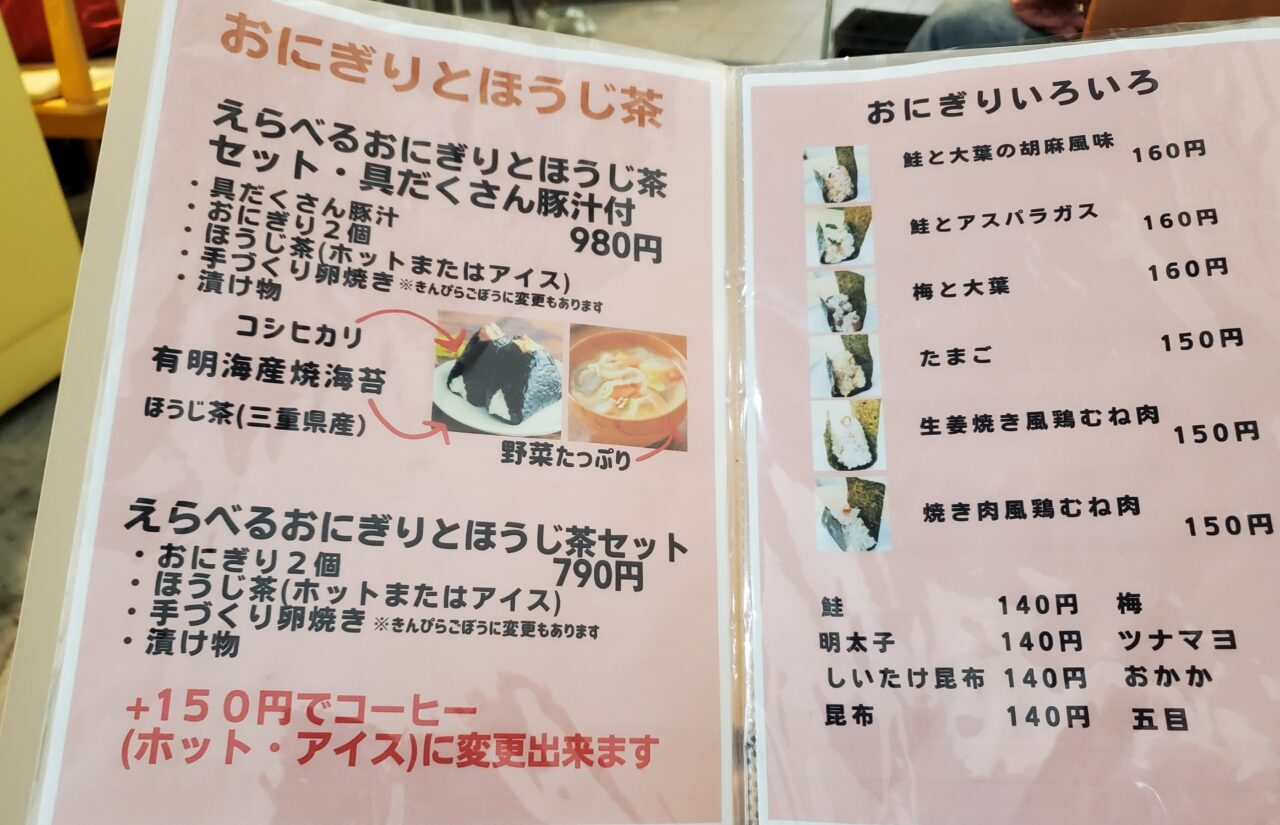 おにぎりとほうじ茶
えらべるおにぎりとほうじ茶
セット・具だくさん豚汁付
・具だくさん豚汁 980円
・おにぎり2個
・ほうじ茶(ホットまたはアイス)
・手づくり卵焼き ※きんぴらごぼうに変更もあります
・漬け物
コシヒカリ
有明海産焼海苔
ほうじ茶(三重県産)
野菜たっぷり
えらべるおにぎりとほうじ茶セット
・おにぎり2個 790円
・ほうじ茶(ホットまたはアイス)
・手づくり卵焼き ※きんぴらごぼうに変更もあります
・漬け物
+150円でコーヒー
(ホット・アイス)に変更出来ます
おにぎりいろいろ
鮭と大葉の胡麻風味 160円
鮭とアスパラガス 160円
梅と大葉 160円
たまご 150円
生姜焼き風鶏むね肉 150円
焼き肉風鶏むね肉 150円
鮭 140円 梅
明太子 140円 ツナマヨ
しいたけ昆布 140円 おかか
昆布 140円 五目